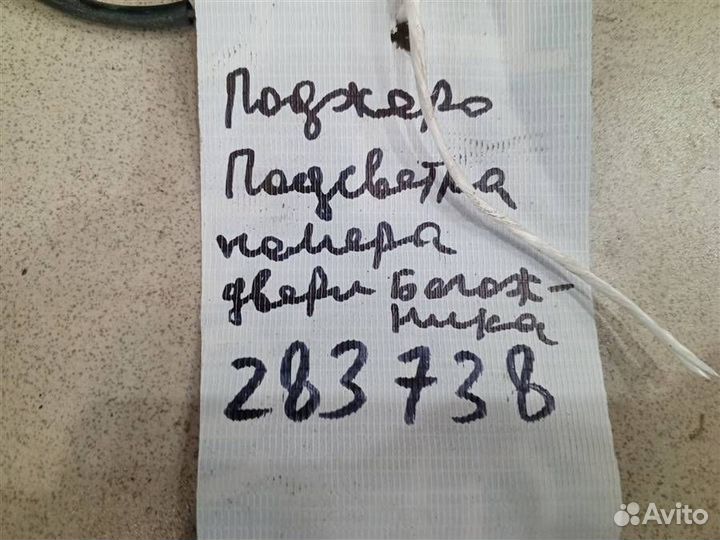 Поджеро
Подсветка
намера
двери Богаж-
ника
283738
Avito